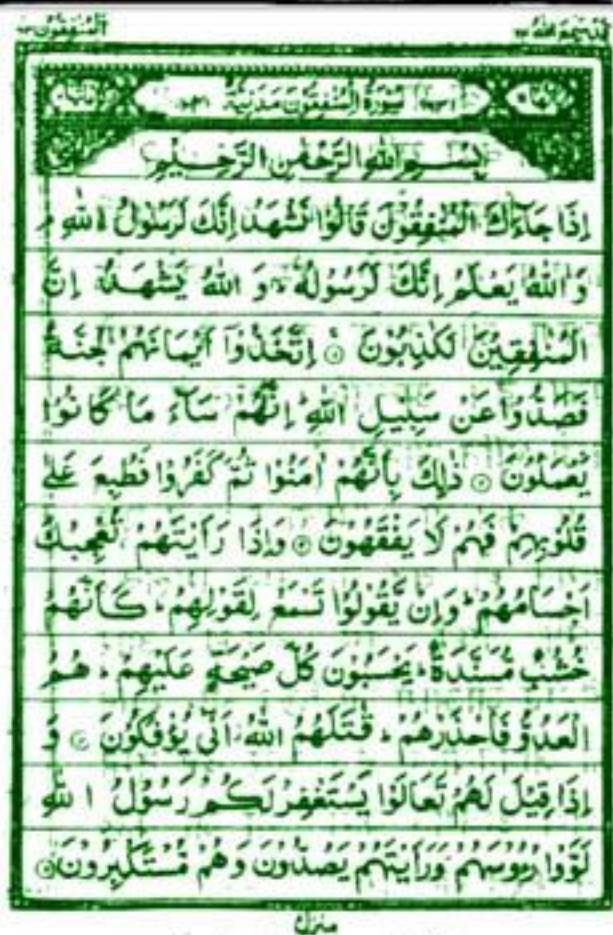 المنفقون ٦٣
قد سمع الله ٢٨
سورة المنفقون مدنية
بسم الله الرحمن الرحيم
إِذَا جَآءَكَ الْمُنٰفِقُوْنَ قَالُوْا نَشْهَدُ اِنَّكَ لَرَسُوْلُ اللّٰهِ ۘ
وَ اللّٰهُ يَعْلَمُ اِنَّكَ لَرَسُوْلُهٗ ؕ وَ اللّٰهُ يَشْهَدُ اِنَّ
الْمُنٰفِقِيْنَ لَكٰذِبُوْنَ ۝ اِتَّخَذُوْٓا اَيْمَانَهُمْ جُنَّةً
فَصَدُّوْا عَنْ سَبِيْلِ اللّٰهِ ؕ اِنَّهُمْ سَآءَ مَا كَانُوْا
يَعْمَلُوْنَ ۝ ذٰلِكَ بِاَنَّهُمْ اٰمَنُوْا ثُمَّ كَفَرُوْا فَطُبِعَ عَلٰى
قُلُوْبِهِمْ فَهُمْ لَا يَفْقَهُوْنَ ۝ وَاِذَا رَاَيْتَهُمْ تُعْجِبُكَ
اَجْسَامُهُمْ ؕ وَاِنْ يَّقُوْلُوْا تَسْمَعْ لِقَوْلِهِمْ ؕ كَاَنَّهُمْ
خُشُبٌ مُّسَنَّدَةٌ ؕ يَحْسَبُوْنَ كُلَّ صَيْحَةٍ عَلَيْهِمْ ؕ هُمُ
الْعَدُوُّ فَاحْذَرْهُمْ ؕ قٰتَلَهُمُ اللّٰهُ ؗ اَنّٰى يُؤْفَكُوْنَ ۝ وَ
اِذَا قِيْلَ لَهُمْ تَعَالَوْا يَسْتَغْفِرْ لَكُمْ رَسُوْلُ اللّٰهِ
لَوَّوْا رُءُوْسَهُمْ وَرَاَيْتَهُمْ يَصُدُّوْنَ وَهُمْ مُّسْتَكْبِرُوْنَ ۝
منزل